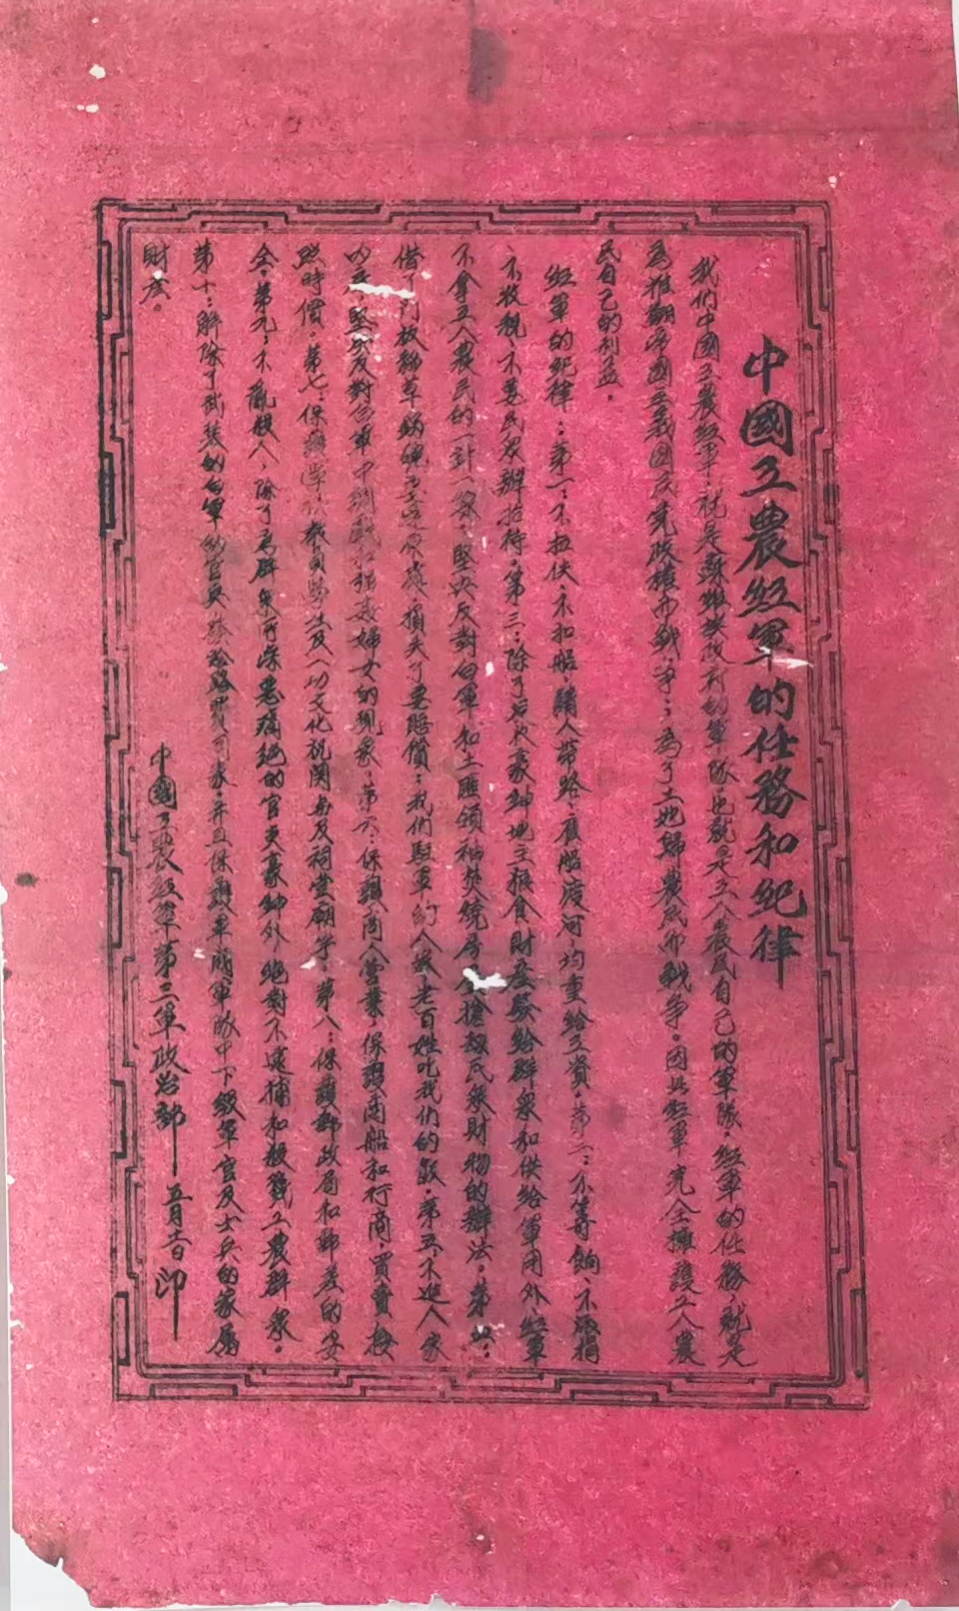 中國工農紅軍的任務和紀律
我們中國工農紅軍，就是蘇維埃政府的軍隊，也就是工人農民自己的軍隊。紅軍的任務，就是
為推翻帝國主義國民党政權而戰爭：為了土地歸農民而戰爭。因此紅軍完全擁護工人農
民自己的利益。
紅軍的紀律：第一：不拉伕、不扣船、請人帶路、雇船渡河、均重給工資。第二：不籌餉、不派捐
、不收稅、不要民眾辦招待。第三：除了豪紳地主粮食財產發給群眾和供給軍用外，紅軍
不拿工人農民的一針一線，堅决反對白軍和土匪領袖焚燒房屋搶掠民眾財物的辦法。第四：
借了門板稻草鍋碗要還原處，損失了要賠償：我們駐軍的人眾老百姓吃我們的飯。第五：不進人家
堅决反對白軍中調戲和強姦婦女的現象。第六：保護商人營業，保護商船和行商，買賣按
照時價。第七：保護學校教員學生及一切文化机関与及祠堂廟宇。第八：保護郵政局和郵差的安
全。第九：不亂殺人，除了為群眾所深惡痛絕的官吏豪紳外，絕對不逮捕和殺戮工農群眾。
第十：解除了武裝的白軍的官兵發給路費回家，并且保護軍閥軍隊中下級軍官及士兵的家屬
財产。
中國工農紅軍第三軍政治部
五月 印